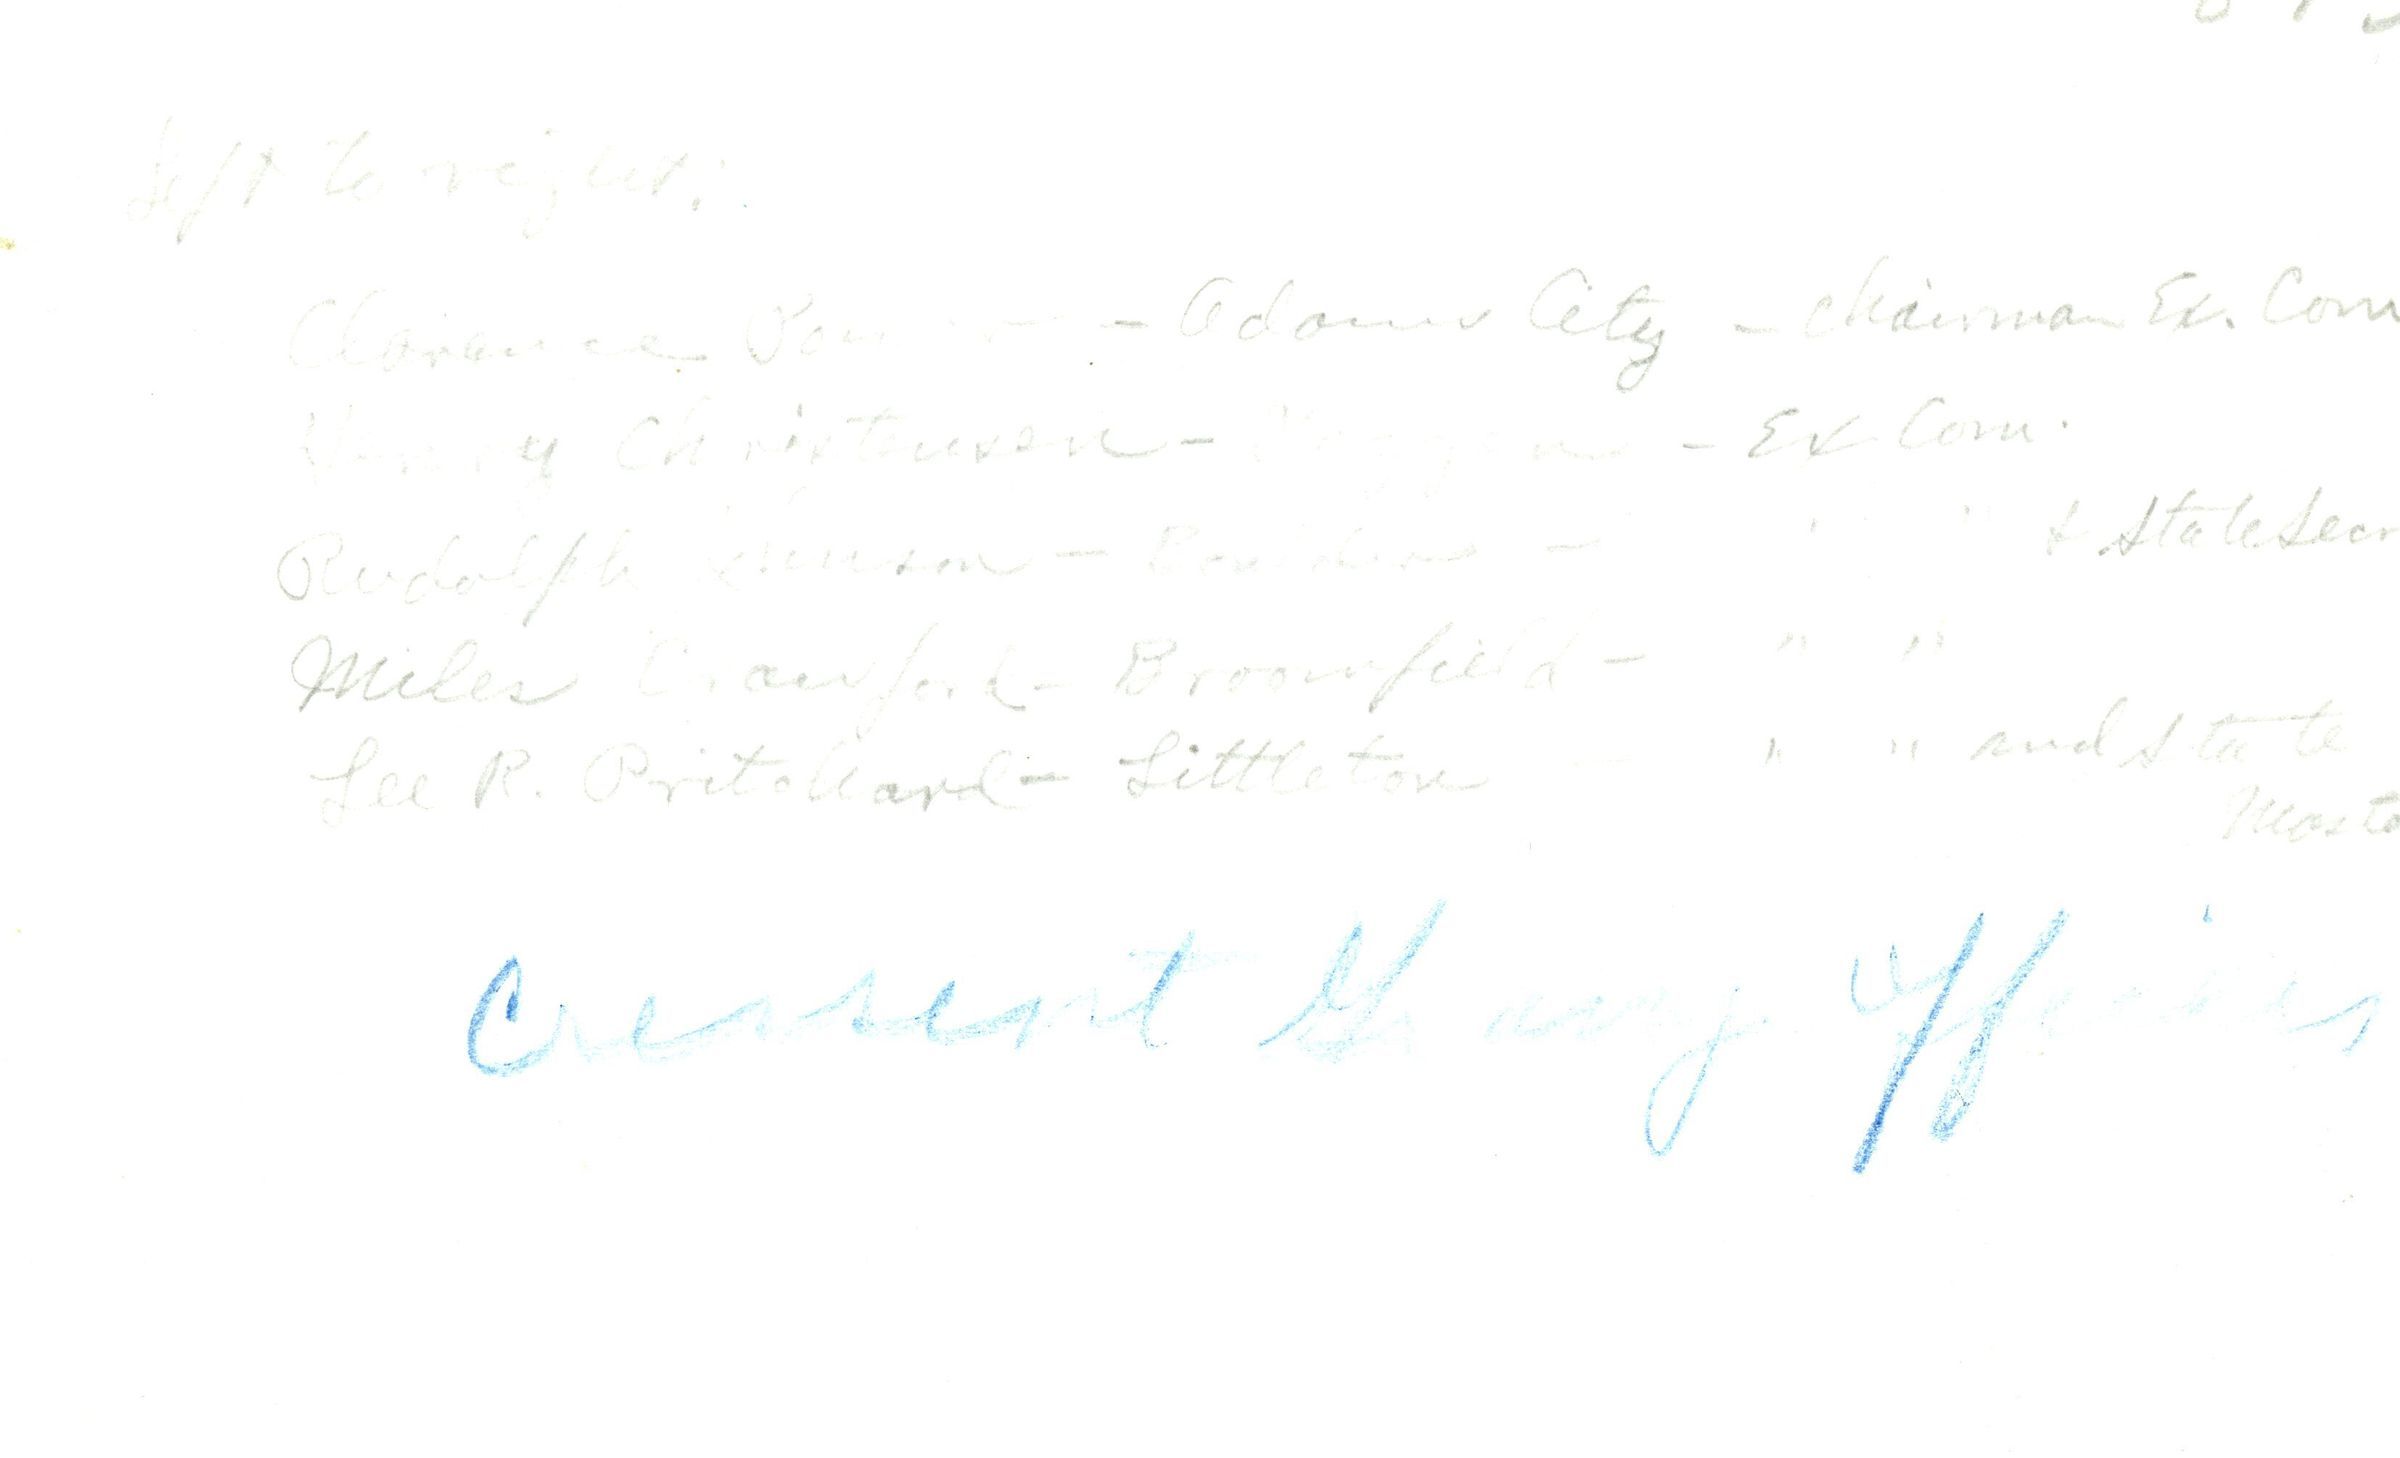 Left to right:
Clarence - Adams City - Chairman Ex. Com
Henry Christensen - - Ex Com.
Rudolph - Boulder - " " & State Secr
Miles Crawford - Broomfield - " "
Lee R. Pritchard - Littleton - " " and State
Maste
Cressent Grange